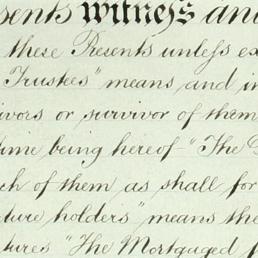 sents witness and
these Presents unless ex
Trustees" means and in
ivors or survivor of them
time being hereof "The D
ch of them as shall for
ture holders" means the
tures "The Mortgaged p